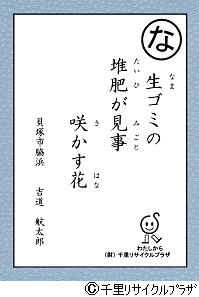 な
生ゴミの
なま
堆肥が見事
たいひ みごと
咲かす花
さ はな
貝塚市脇浜 吉道 猷太郎
わたしから
(財)千里リサイクルプラザ
©千里リサイクルプラザ